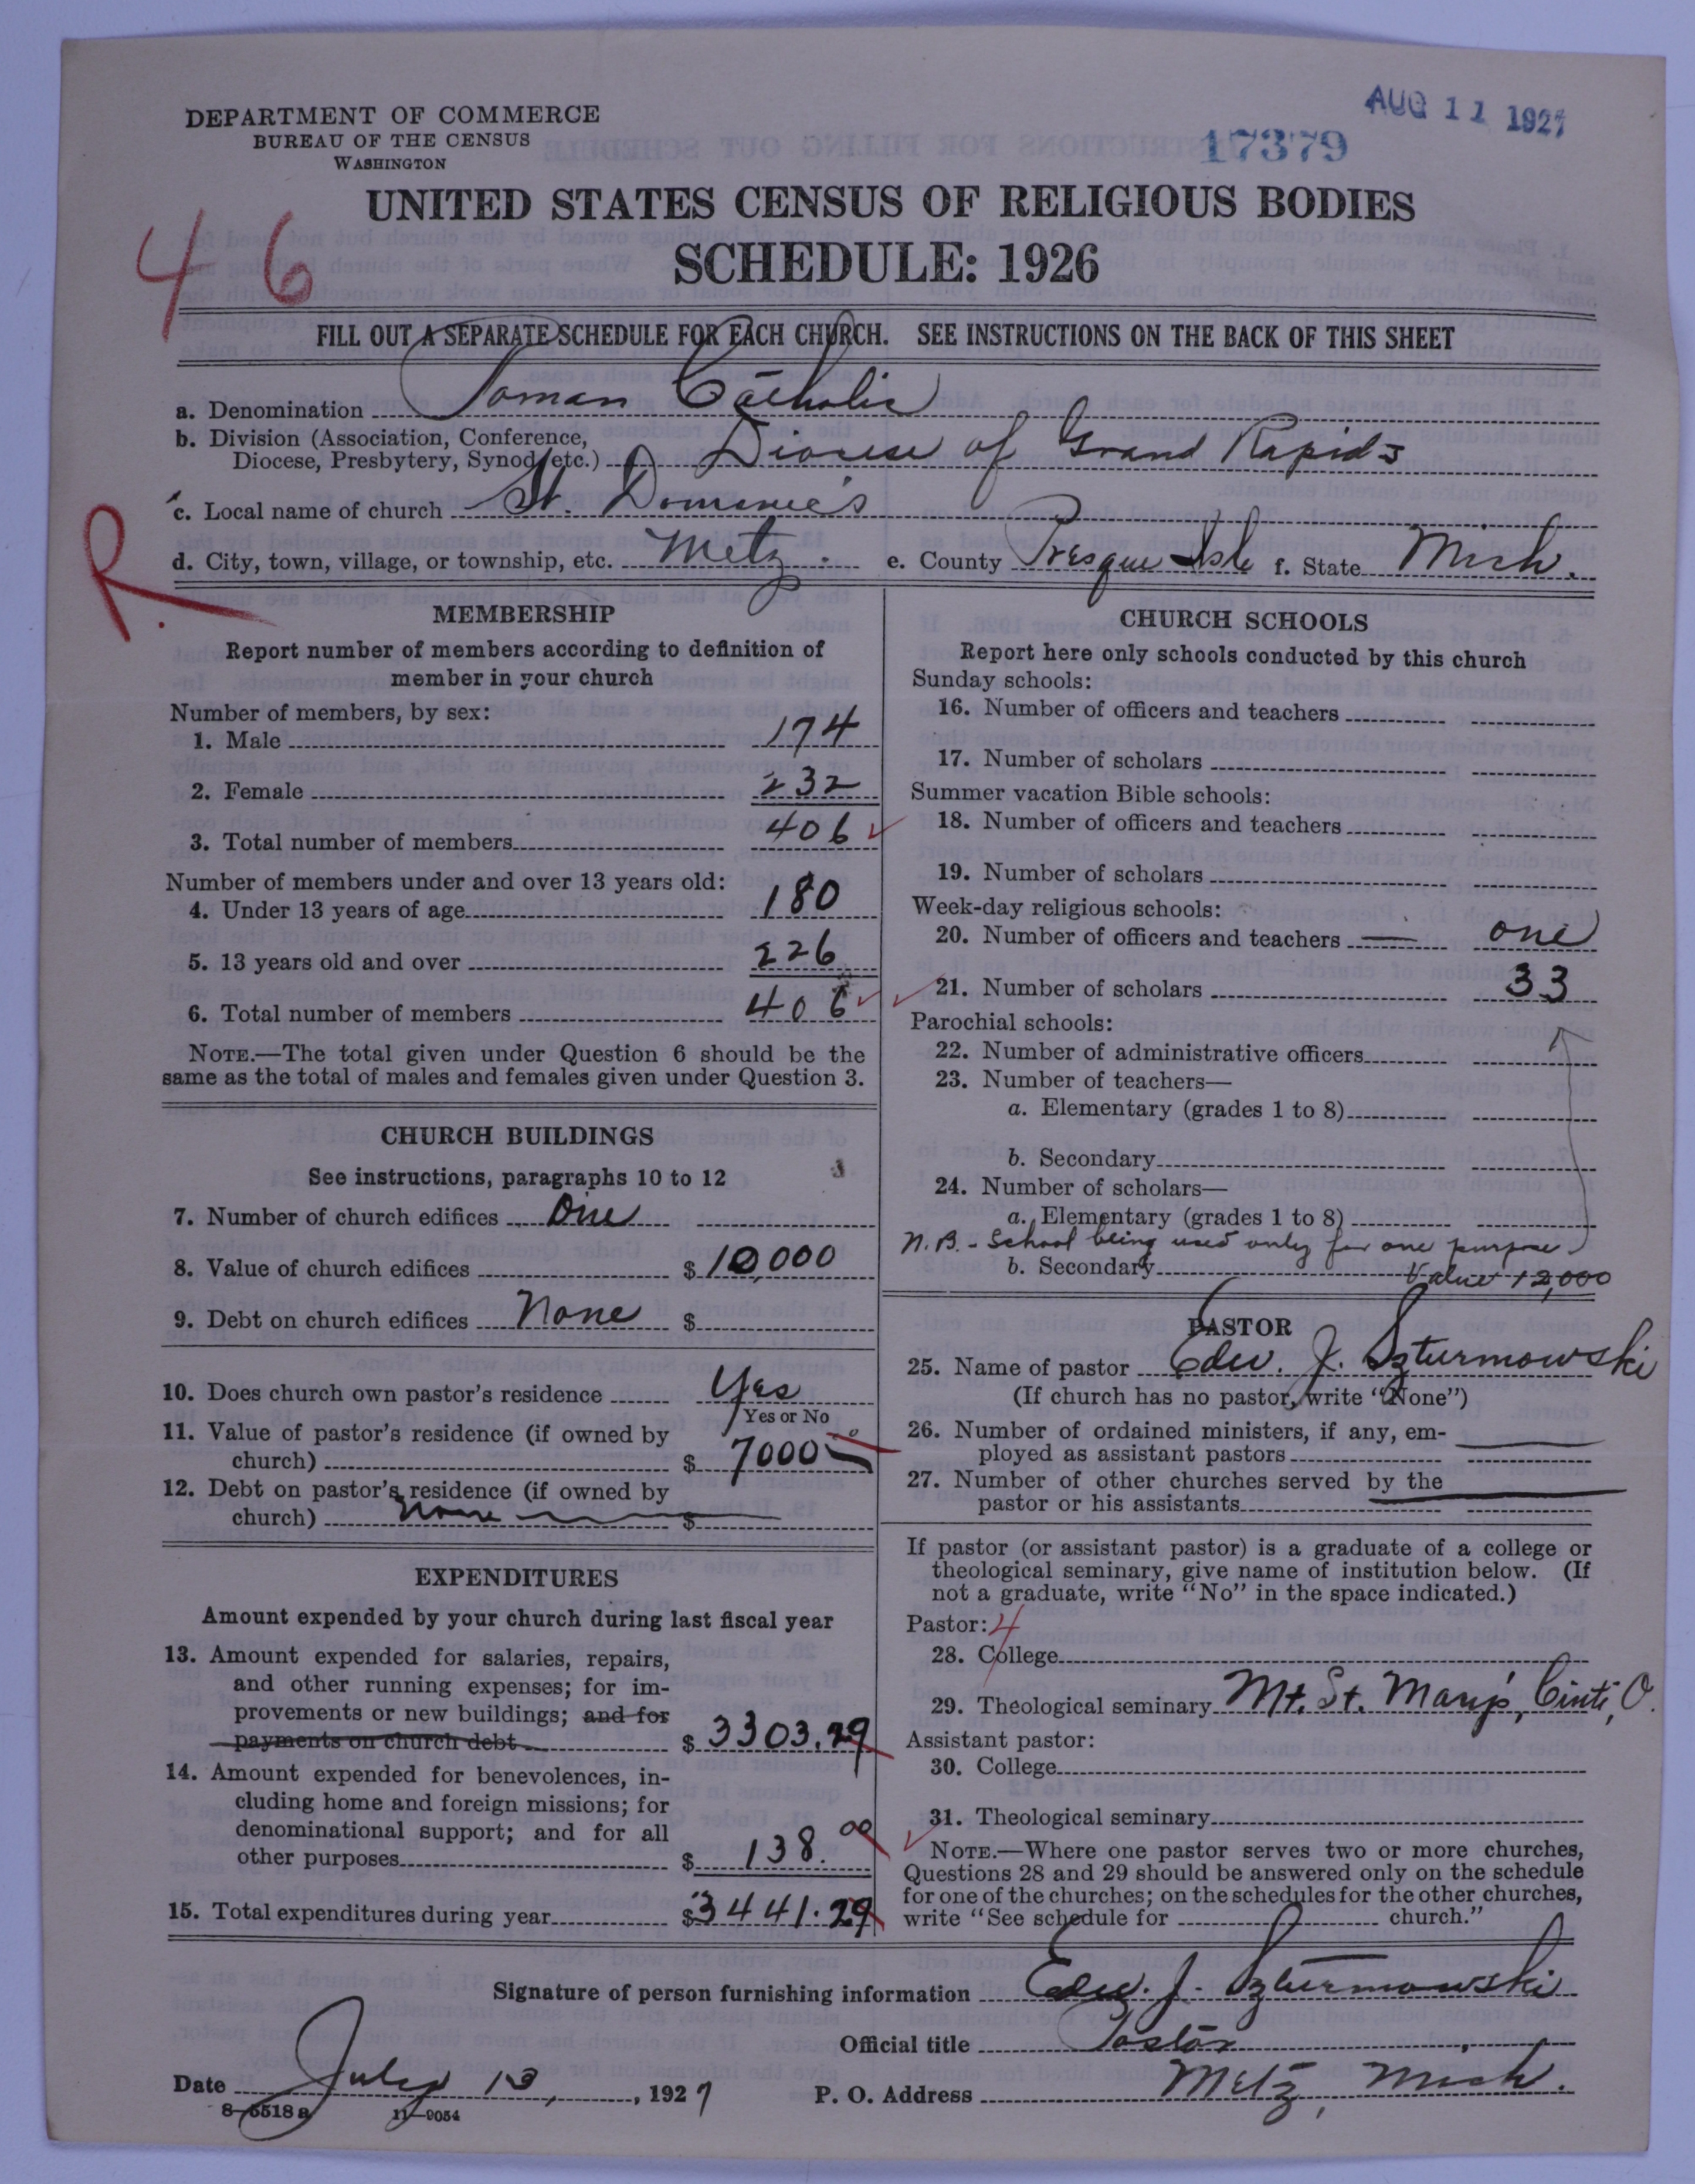 DEPARTMENT OF COMMERCE
BUREAU OF THE CENSUS
WASHINGTON
AUG 11 1927
17379
UNITED STATES CENSUS OF RELIGIOUS BODIES
SCHEDULE: 1926
46
FILL OUT A SEPARATE SCHEDULE FOR EACH CHURCH. SEE INSTRUCTIONS ON THE BACK OF THIS SHEET
a. Denomination Roman Catholic
b. Division (Association, Conference,
Diocese, Presbytery, Synod, etc.) Diocese of Grand Rapids
c. Local name of church St. Dominic's
d. City, town, village, or township, etc. Metz. e. County Presque Isle f. State Mich.
R.
MEMBERSHIP
Report number of members according to definition of
member in your church
Number of members, by sex:
1. Male 174
2. Female 232
3. Total number of members 406
Number of members under and over 13 years old:
4. Under 13 years of age 180
5. 13 years old and over 226
6. Total number of members 406
NOTE.—The total given under Question 6 should be the
same as the total of males and females given under Question 3.
CHURCH BUILDINGS
See instructions, paragraphs 10 to 12
7. Number of church edifices One
8. Value of church edifices $ 10,000
9. Debt on church edifices None $
10. Does church own pastor's residence Yes
Yes or No
11. Value of pastor's residence (if owned by
church) $ 7000
12. Debt on pastor's residence (if owned by
church) None $
EXPENDITURES
Amount expended by your church during last fiscal year
13. Amount expended for salaries, repairs,
and other running expenses; for im-
provements or new buildings; and for
payments on church debt $ 3303.29
14. Amount expended for benevolences, in-
cluding home and foreign missions; for
denominational support; and for all
other purposes $ 138.00
15. Total expenditures during year $3441.29
CHURCH SCHOOLS
Report here only schools conducted by this church
Sunday schools:
16. Number of officers and teachers
17. Number of scholars
Summer vacation Bible schools:
18. Number of officers and teachers
19. Number of scholars
Week-day religious schools:
20. Number of officers and teachers — one
21. Number of scholars 33
Parochial schools:
22. Number of administrative officers
23. Number of teachers—
a. Elementary (grades 1 to 8)
b. Secondary
24. Number of scholars—
a. Elementary (grades 1 to 8)
N.B. - School being used only for one purpose
b. Secondary Value 12,000
PASTOR
25. Name of pastor Edw. J. Szturmowski
(If church has no pastor, write "None")
26. Number of ordained ministers, if any, em-
ployed as assistant pastors
27. Number of other churches served by the
pastor or his assistants
If pastor (or assistant pastor) is a graduate of a college or
theological seminary, give name of institution below. (If
not a graduate, write "No" in the space indicated.)
Pastor: 4
28. College
29. Theological seminary Mt. St. Mary's, Cinti, O.
Assistant pastor:
30. College
31. Theological seminary
NOTE.—Where one pastor serves two or more churches,
Questions 28 and 29 should be answered only on the schedule
for one of the churches; on the schedules for the other churches,
write "See schedule for church."
Signature of person furnishing information Edw. J. Szturmowski
Official title Pastor
Date July 13, 1927 P. O. Address Metz, Mich.
8-5518a 11-9054